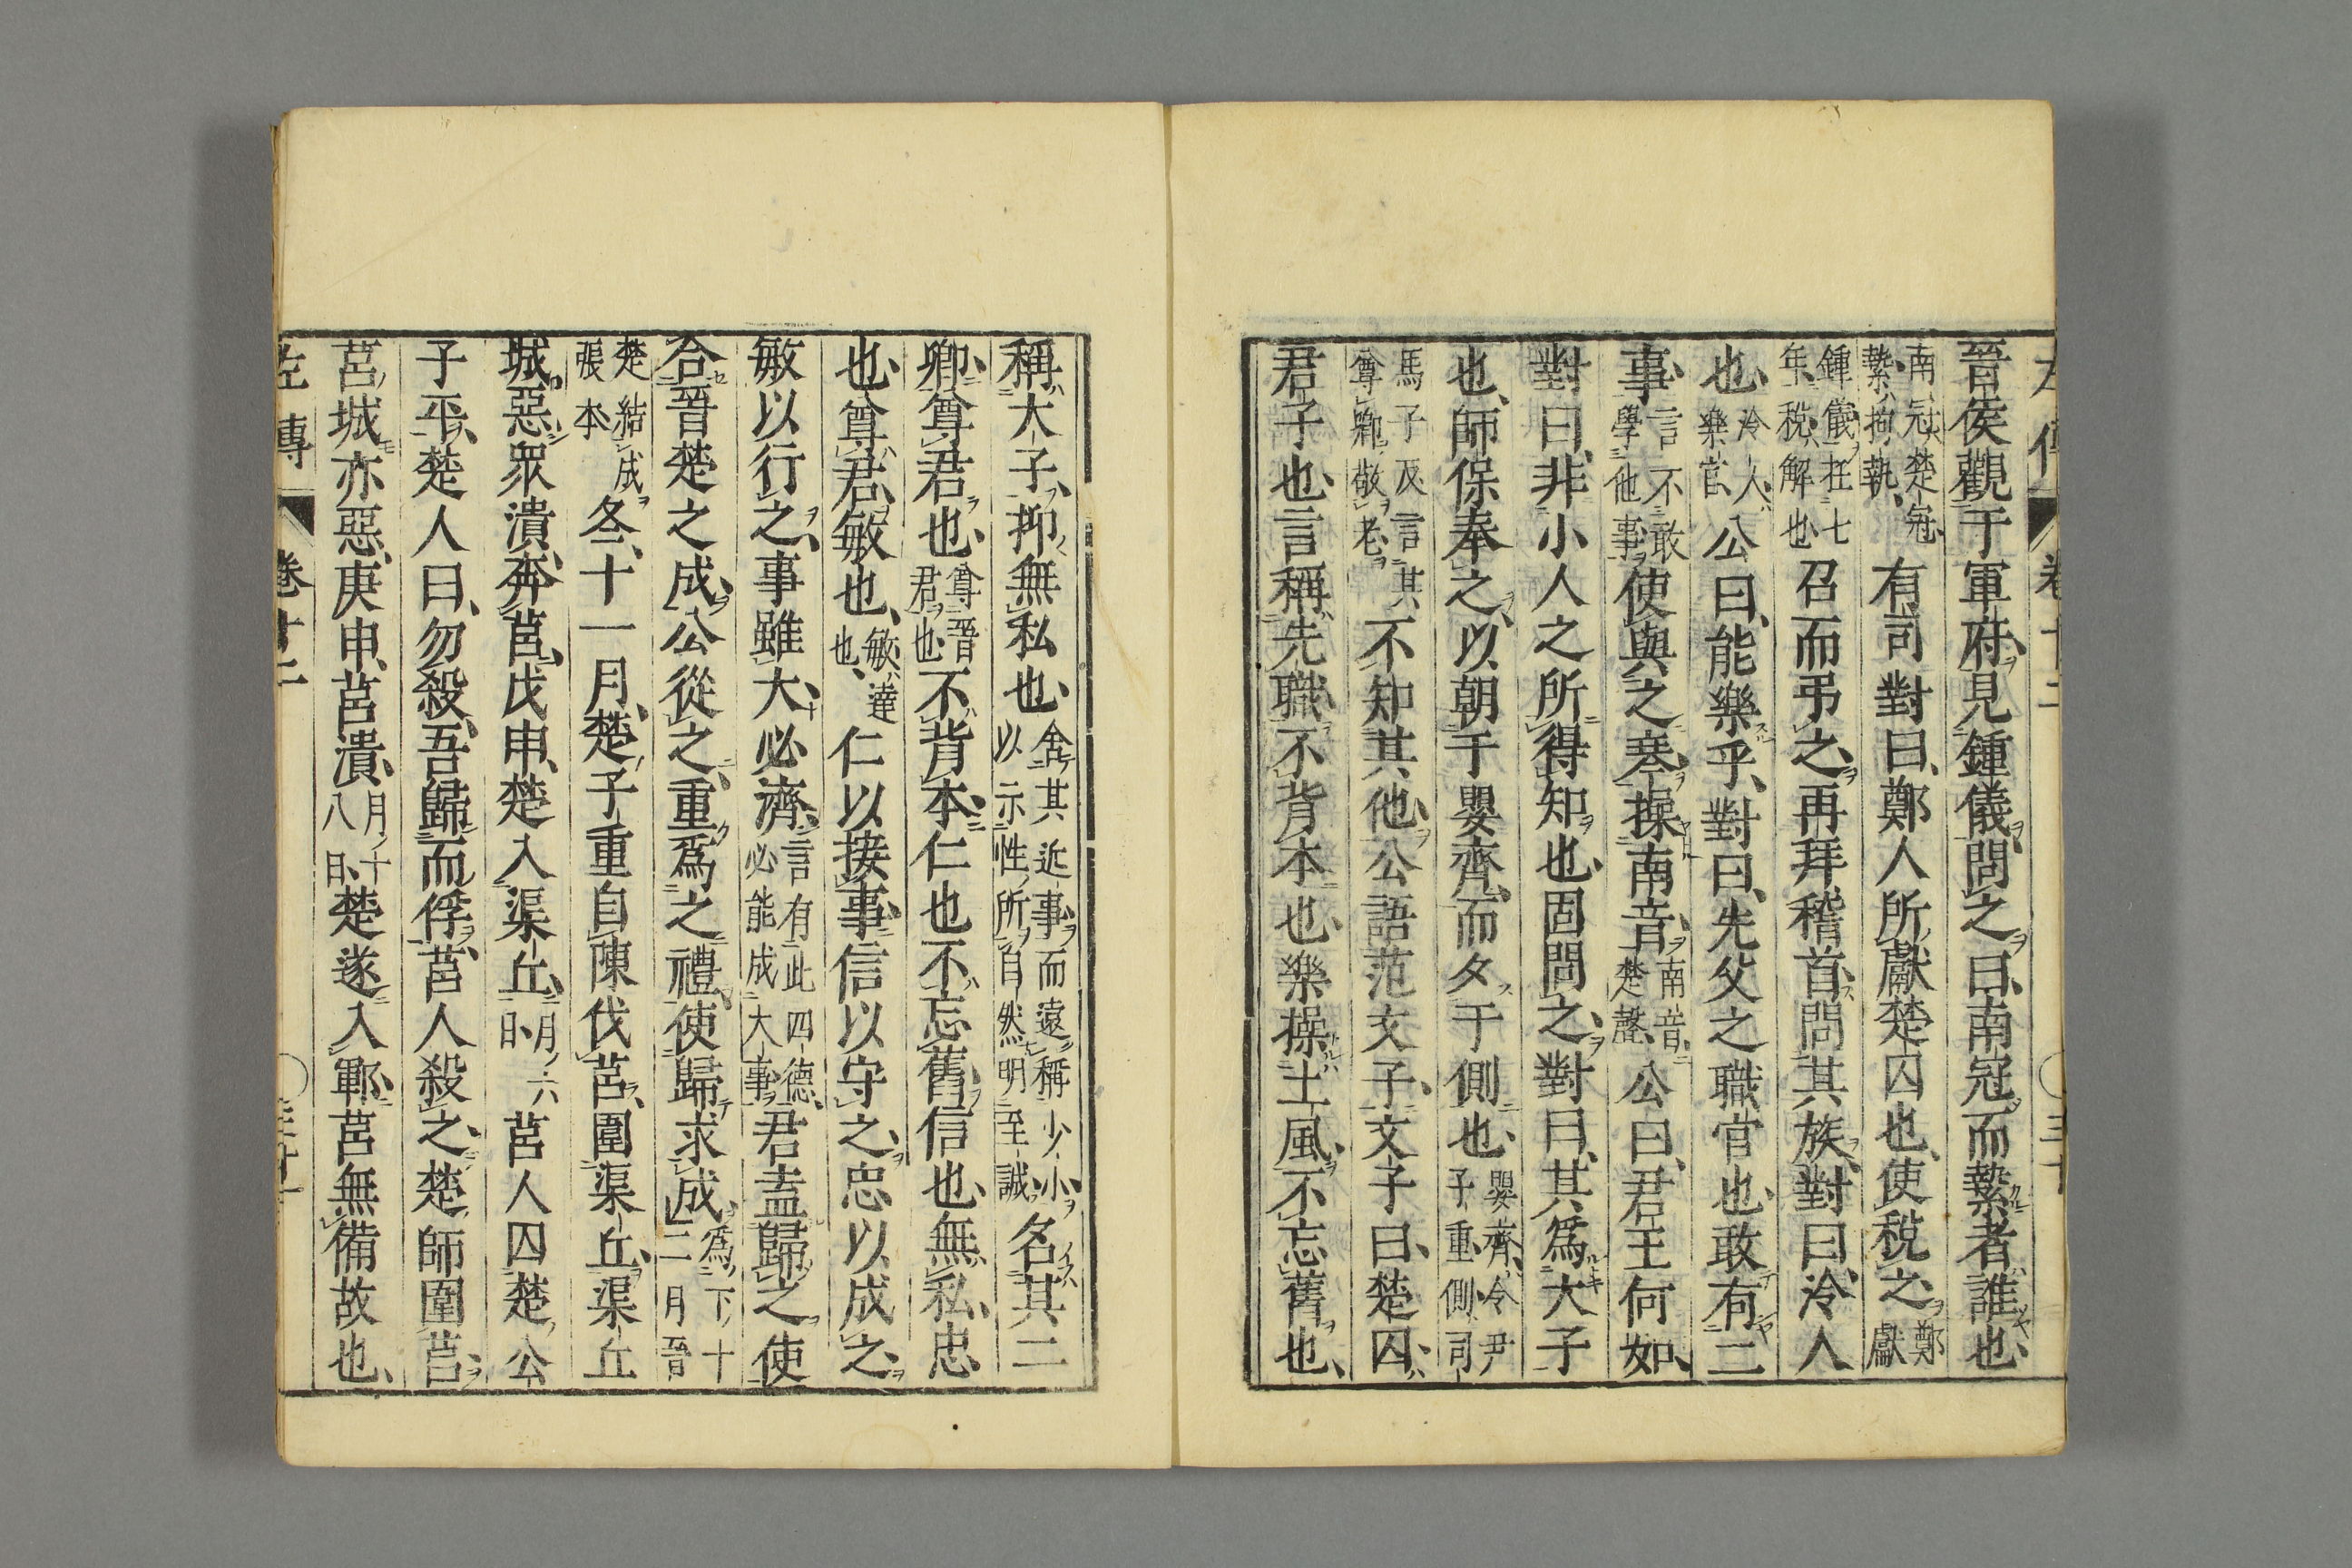 晉侯觀于軍府、見鍾儀、問之曰、南冠而縶者誰也、
南冠、楚冠、縶、拘執、有司對曰、鄭人所獻楚囚也、使稅之、鄭獻
鍾儀在七年、稅、解也、召而弔之、再拜稽首、問其族、對曰、泠人
也、泠人、樂官、公曰、能樂乎、對曰、先父之職官也、敢有二
事、言不敢學他事、使與之琴、操南音、南音、楚聲、公曰、君王何如、
對曰、非小人之所得知也、固問之、對曰、其爲大子
也、師保奉之、以朝于嬰齊、而夕于側也、嬰齊、令尹子重、側、司
馬子反、言其尊卿敬老、不知其他、公語范文子、文子曰、楚囚、
君子也、言稱先職、不背本也、樂操土風、不忘舊也、
稱大子、抑無私也、舍其近事、而遠稱少小、以示性所自然、明至誠、名其二
卿、尊君也、尊晉君也、不背本、仁也、不忘舊、信也、無私、忠
也、尊君、敏也、敏、達也、仁以接事、信以守之、忠以成之、
敏以行之、事雖大、必濟、言有此四德、必能成大事、君盍歸之、使
合晉楚之成、公從之、重爲之禮、使歸求成、爲下十二月晉
楚結成張本、冬、十一月、楚子重自陳伐莒、圍渠丘、渠丘
城惡、眾潰、奔莒、戊申、楚入渠丘、月六日、莒人囚楚公
子平、楚人曰、勿殺、吾歸而俘、莒人殺之、楚師圍莒、
莒城亦惡、庚申、莒潰、月十八日、楚遂入鄆、莒無備故也、
左傳 卷十二